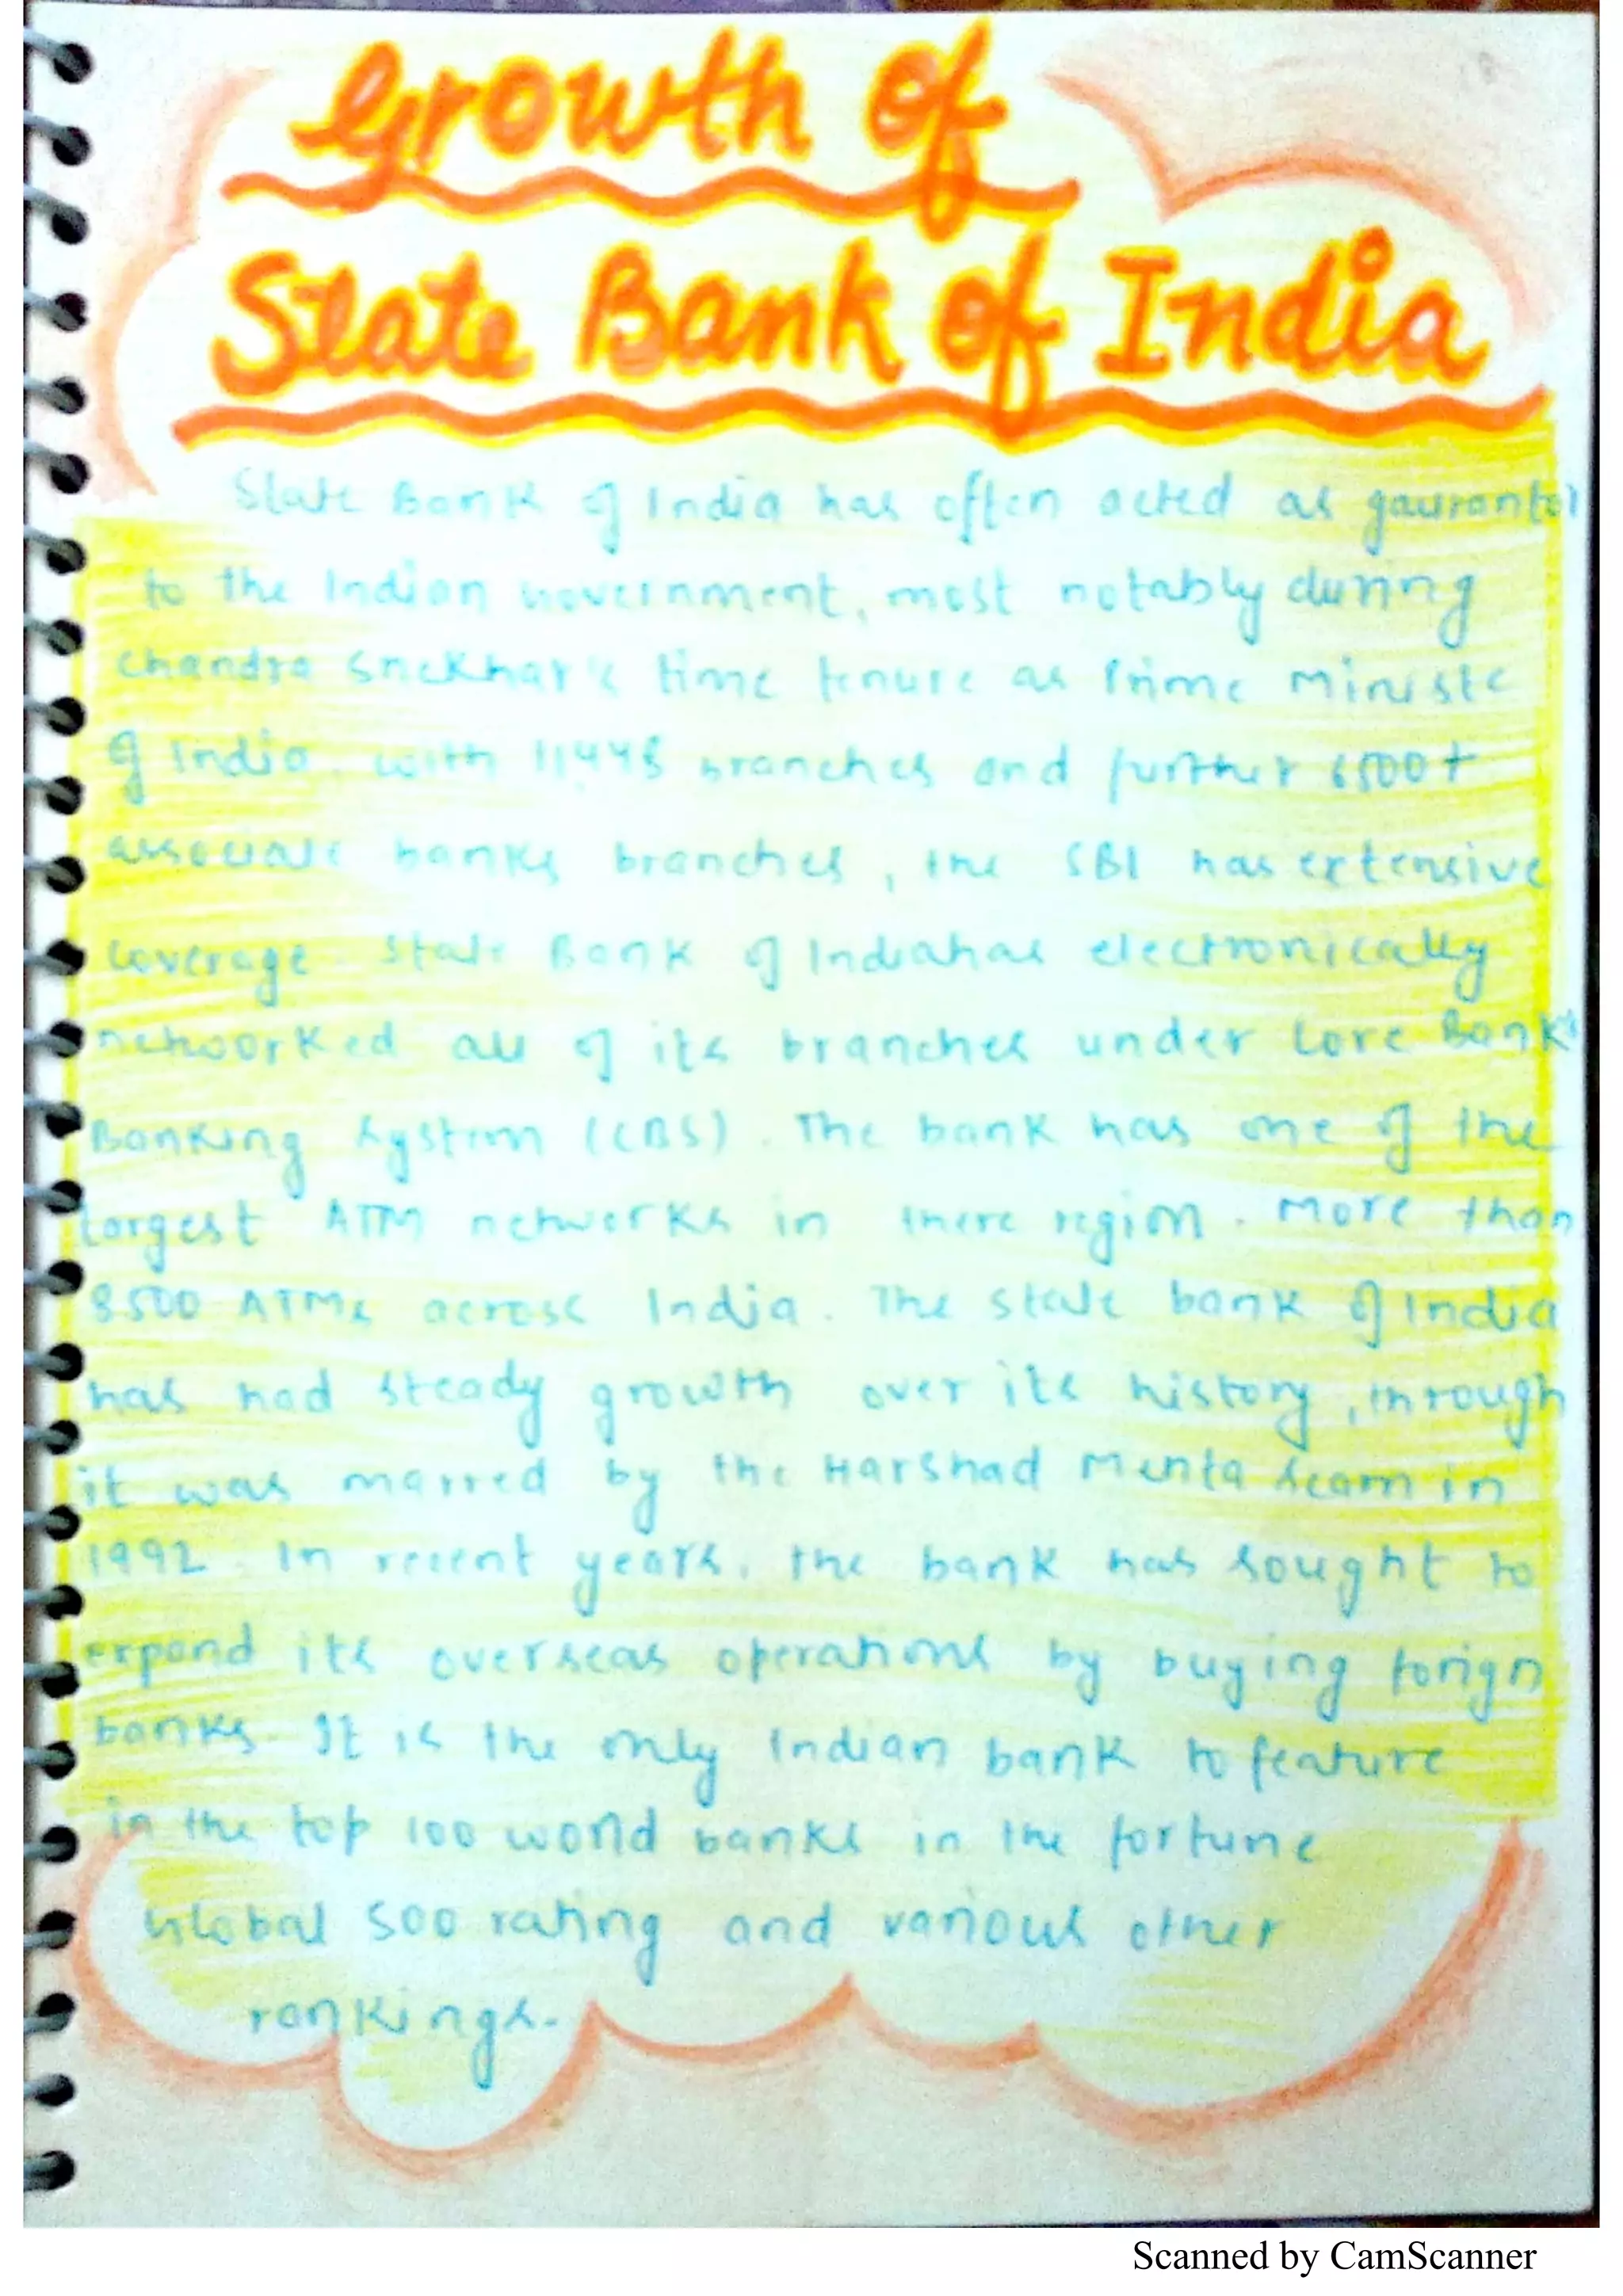 Growth of
State Bank of India
State Bank of India has often acted as gaurantor
to the Indian Government, most notably during
Chandra Shekhar's time tenure as Prime Ministe
of India. with 11,448 branches and further 6500+
associate banks branches, the SBI has extensive
coverage. State Bank of India has electronically
networked all of its branches under Core Bank
Banking System (CBS). The bank has one of the
largest ATM networks in there region. More than
8500 ATMs across India. The state bank of India
has had steady growth over its history, through
it was marred by the Harshad Mehta scam in
1992. In recent years, the bank has sought to
expand its overseas operations by buying forign
banks. It is the only Indian bank to feature
in the top 100 world banks in the fortune
Global 500 rating and various other
rankings.
Scanned by CamScanner